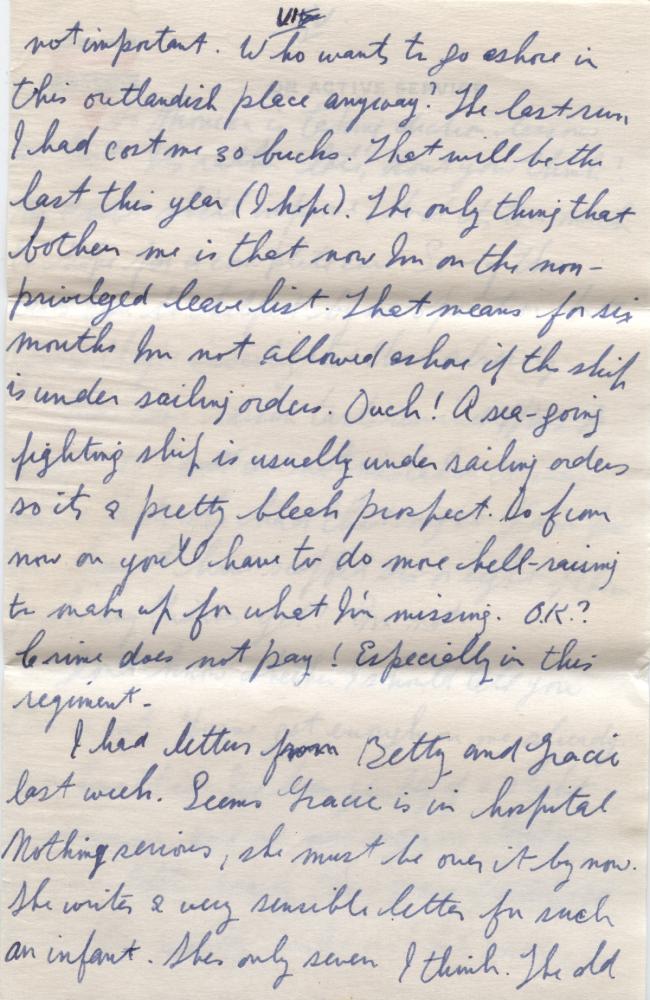 VII
not important. Who wants to go ashore in
this outlandish place anyway? The last run
I had cost me 30 bucks. That will be the
last this year (I hope). The only thing that
bothers me is that now Im on the non-
privileged leave list. That means for six
months Im not allowed ashore if the ship
is under sailing orders. Ouch! A sea-going
fighting ship is usually under sailing orders
so its a pretty bleak prospect. So from
now on you'll have to do more hell-raising
to make up for what I'm missing. O.K.?
Crime does not pay! Especially in this
regiment.
I had letters from Betty and Gracie
last week. Seems Gracie is in hospital
Nothing serious, she must be over it by now.
She writes a very sensible letter for such
an infant. Shes only seven I think. The old